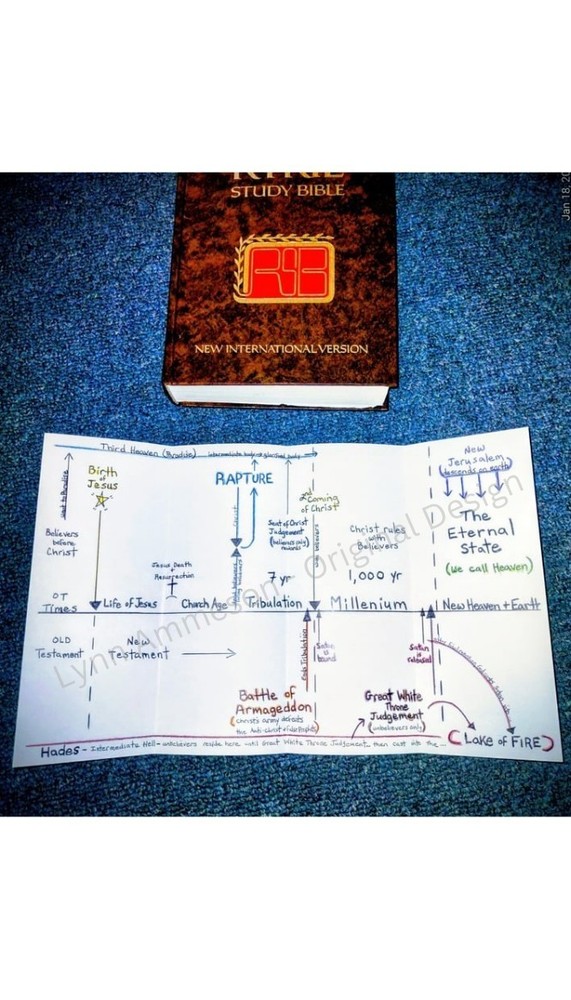 STUDY BIBLE
NEW INTERNATIONAL VERSION
Jan 18, 20
Third Heaven (Paradise)
Birth
of
Jesus
RAPTURE
2nd Coming
of Christ
New
Jerusalem
(descends on earth)
Believers
before
Christ
Jesus Death
+
Resurrection
Seat of Christ
Judgement
(believers only)
rewards
Christ rules
with
Believers
The
Eternal
State
(we call Heaven)
7 yr
1,000 yr
OT
Times
Life of Jesus
Church Age
Tribulation
Millenium
New Heaven + Earth
OLD
Testament
New
Testament
Ends Tribulation
Satan
is
bound
Satan
is
released
Battle of
Armageddon
(Christ's army defeats
the Anti-christ + false prophet)
Great White
Throne
Judgement
(unbelievers only)
Hades - Intermediate Hell - unbelievers reside here until Great White Throne Judgement, then cast into the...
(Lake of FIRE)
Lynn Ammeson - Original Design